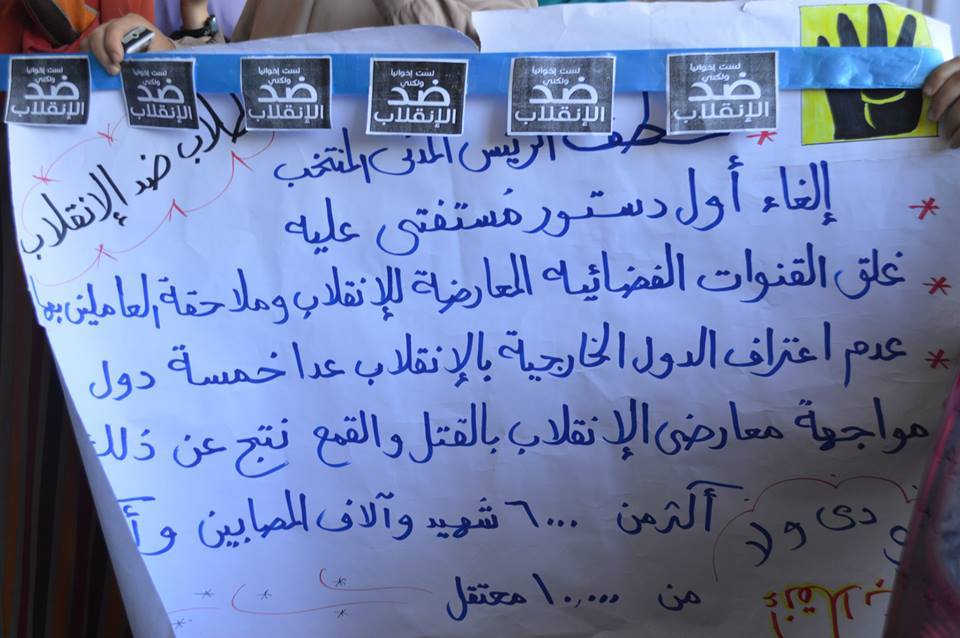 لست إخوانيا
ولكني
ضد
الإنقلاب
لست إخوانيا
ولكني
ضد
الإنقلاب
لست إخوانيا
ولكني
ضد
الإنقلاب
لست إخوانيا
ولكني
ضد
الإنقلاب
لست إخوانيا
ولكني
ضد
الإنقلاب
لست إخوانيا
ولكني
ضد
الإنقلاب
طلاب ضد الإنقلاب
الرئيس المدنى المنتخب
إلغاء أول دستور مُستفتى عليه
غلق القنوات الفضائيه المعارضة للإنقلاب وملاحقة العاملين بها
عدم اعتراف الدول الخارجية بالإنقلاب عدا خمسة دول
مواجهة معارضى الإنقلاب بالقتل والقمع نتج عن ذلك
أكثر من ٦٠٠٠ شهيد وآلاف المصابين
من ١٠,٠٠٠ معتقل
دى ولا
إنقلاب